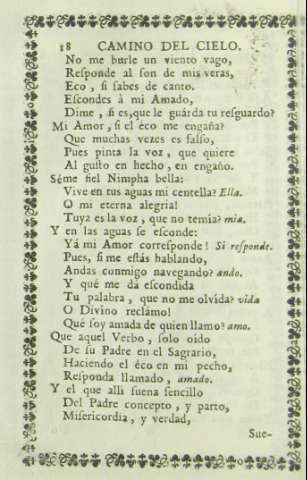 18 CAMINO DEL CIELO.
No me burle un viento vago,
Responde al son de mis veras,
Eco, si sabes de canto.
Escondes à mi Amado,
Dime, si es, que le guárda tu resguardo?
Mi Amor, si el éco me engaña?
Que muchas vezes es falso,
Pues pinta la voz, que quiere
Al gusto en hecho, en engaño.
Séme fiel Nimpha bella:
Vive en tus aguas mi centella? Ella.
O mi eterna alegria!
Tuya es la voz, que no temia? mia.
Y en las aguas se esconde:
Yá mi Amor corresponde! Si responde.
Pues, si me estás hablando,
Andas conmigo navegando? ando.
Y qué me dá escondida
Tu palabra, que no me olvida? vida
O Divino reclámo!
Qué soy amada de quien llamo? amo.
Que aquel Verbo, solo oido
De su Padre en el Sagrario,
Haciendo el éco en mi pecho,
Responda llamado, amado.
Y el que alli suena sencillo
Del Padre concepto, y parto,
Misericordia, y verdad,
Sue-